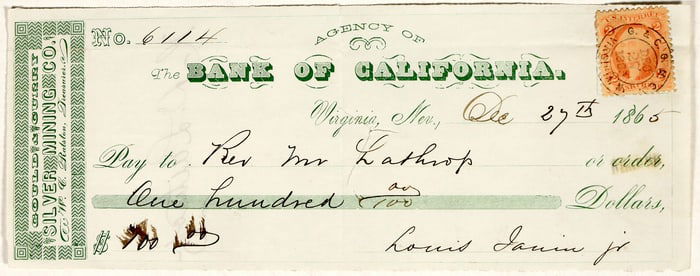 GOULD & CURRY
SILVER MINING CO.
W. C. Ralston, Treasurer
No. 6114
AGENCY OF
The BANK OF CALIFORNIA.
Virginia, Nev., Dec 27th 1865
Pay to Rev Mr Lathrop or order,
One hundred 00/100 Dollars,
$ 100 00
Louis Janin jr
U.S. INTER. REV.
G. & C. S. M. C.